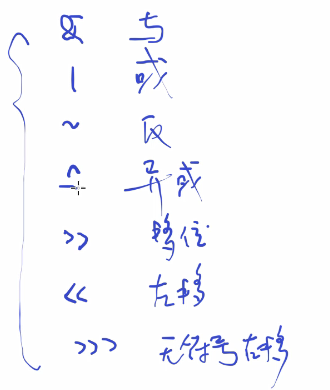 & 与
| 或
~ 反
^ 异或
>> 移位
<< 左移
>>> 无符号左移